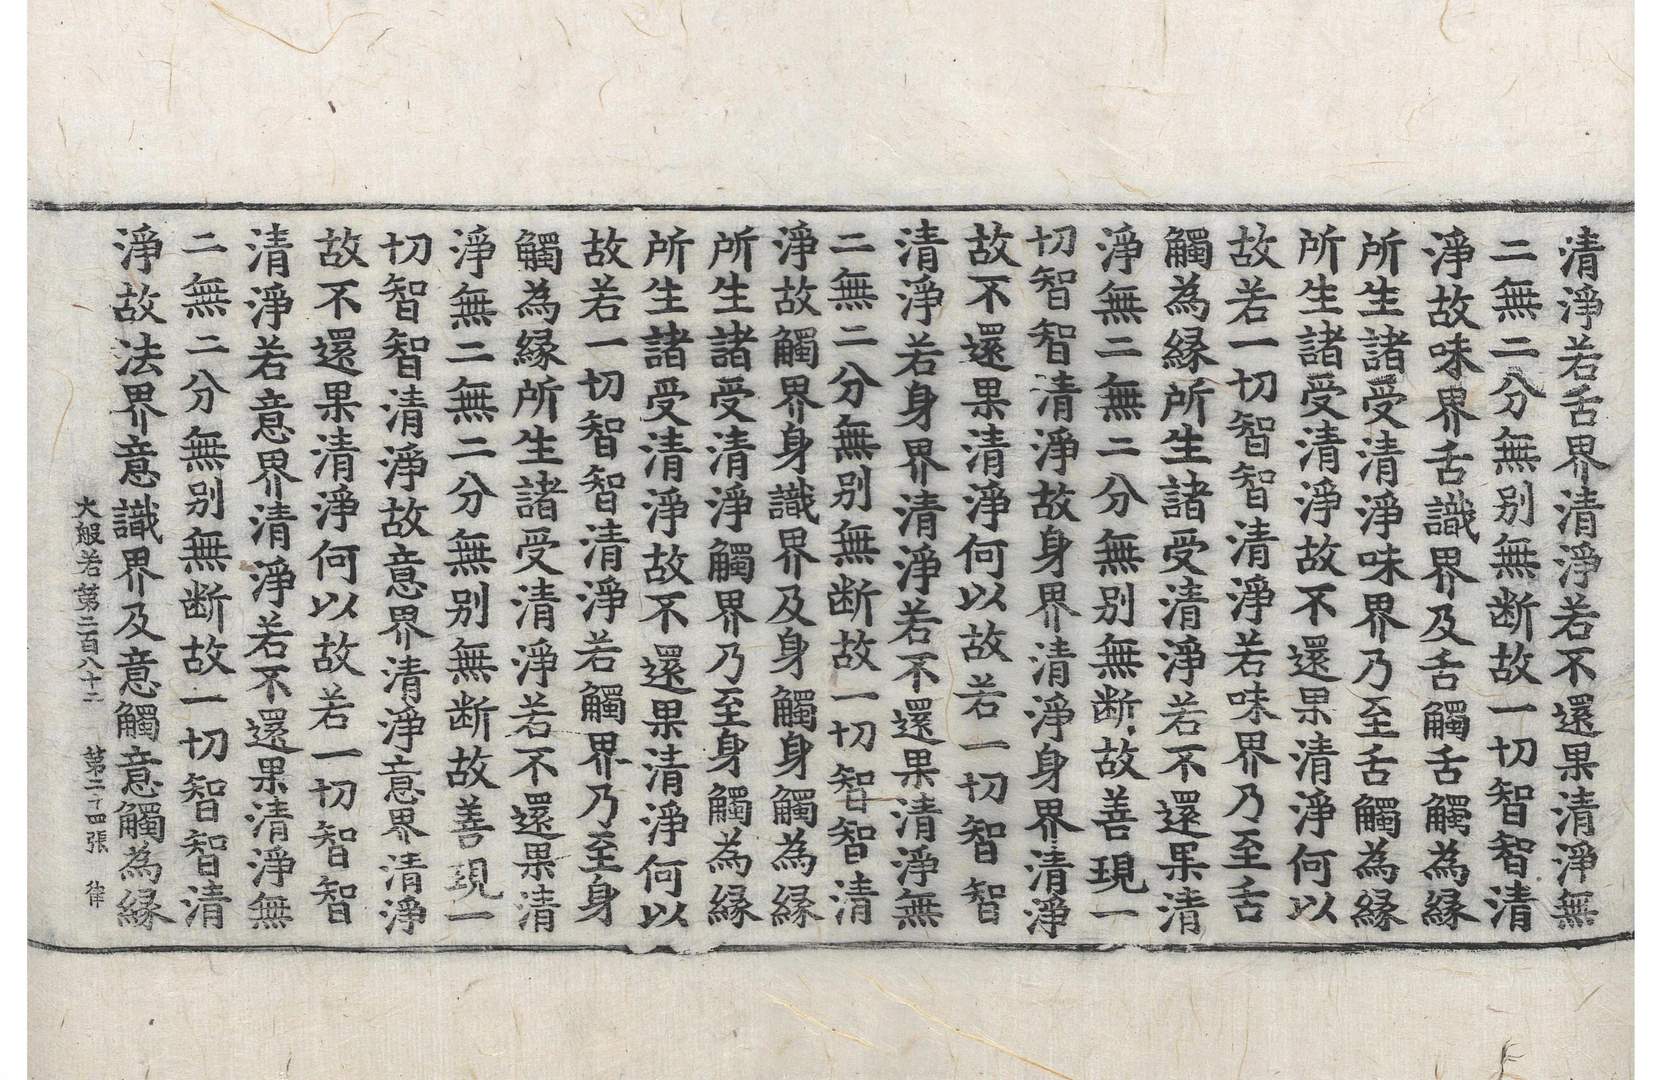 清淨若舌界清淨若不還果清淨無
二無二分無別無断故一切智智清
淨故味界舌識界及舌觸舌觸為縁
所生諸受清淨味界乃至舌觸為縁
所生諸受清淨故不還果清淨何以
故若一切智智清淨若味界乃至舌
觸為縁所生諸受清淨若不還果清
淨無二無二分無別無断故善現一
切智智清淨故身界清淨身界清淨
故不還果清淨何以故若一切智智
清淨若身界清淨若不還果清淨無
二無二分無別無断故一切智智清
淨故觸界身識界及身觸身觸為縁
所生諸受清淨觸界乃至身觸為縁
所生諸受清淨故不還果清淨何以
故若一切智智清淨若觸界乃至身
觸為縁所生諸受清淨若不還果清
淨無二無二分無別無断故善現一
切智智清淨故意界清淨意界清淨
故不還果清淨何以故若一切智智
清淨若意界清淨若不還果清淨無
二無二分無別無断故一切智智清
淨故法界意識界及意觸意觸為縁
大般若第二百八十二 第二十四張 律